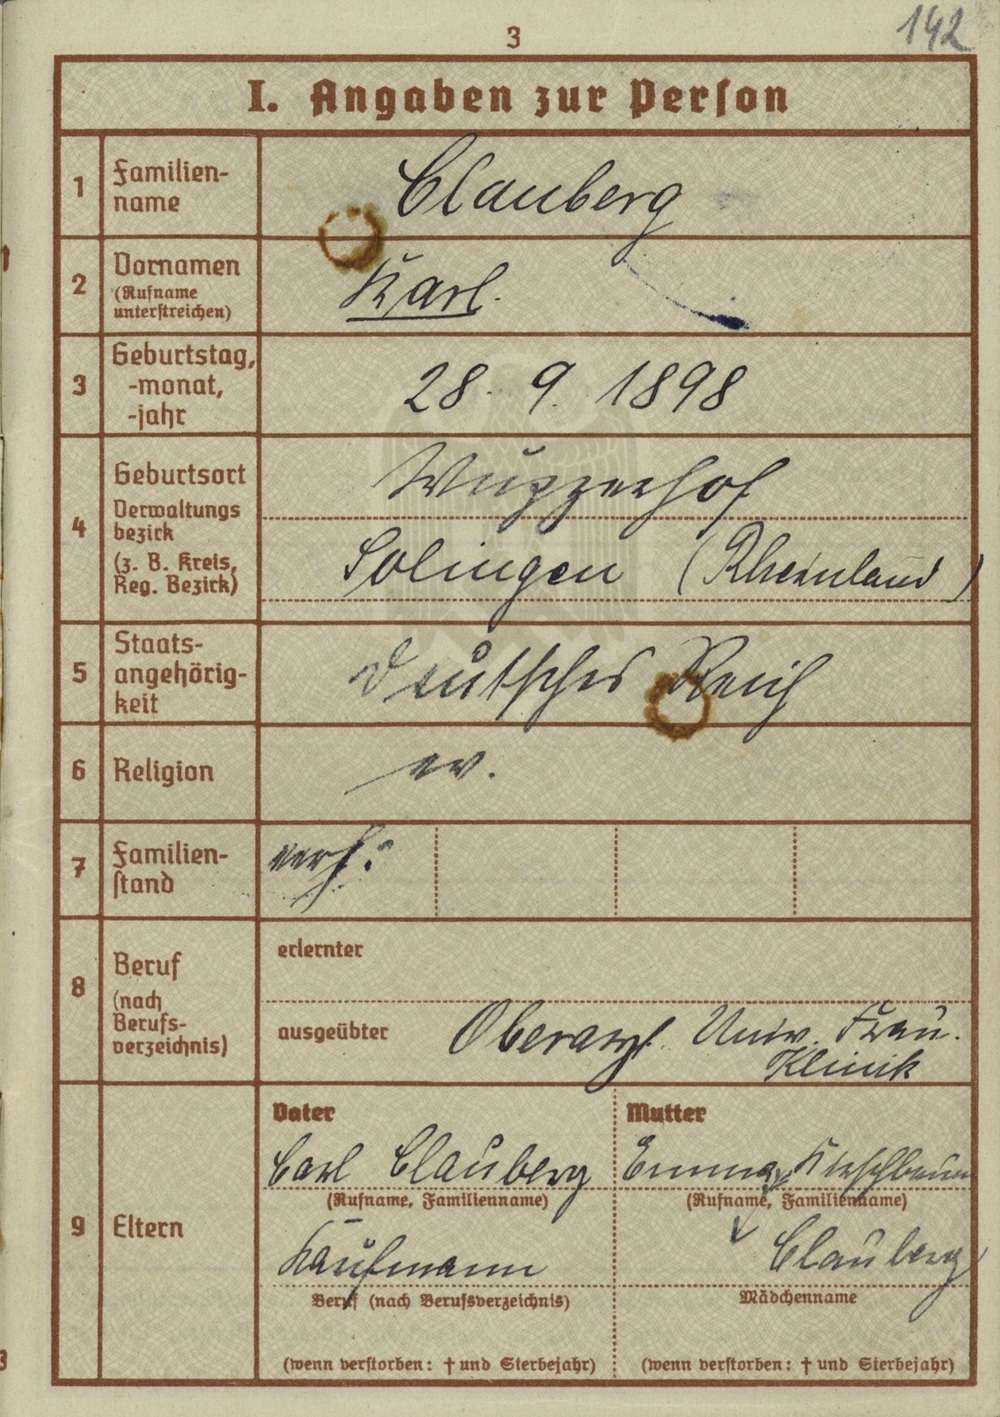 142
3
I. Angaben zur Person
1
Familien-
name
Clauberg
2
Vornamen
(Rufname
unterstreichen)
Karl.
3
Geburtstag,
-monat,
-jahr
28. 9. 1898
4
Geburtsort
Verwaltungs
bezirk
(z. B. Kreis,
Reg. Bezirk)
Wupperhof
Solingen (Rheinland)
5
Staats-
angehörig-
keit
Deutsches Reich
6
Religion
ev.
7
Familien-
stand
verh.
8
Beruf
(nach
Berufs-
verzeichnis)
erlernter
ausgeübter
Oberarzt Univ. Frau.
Klinik
9
Eltern
Vater
Carl Clauberg
(Rufname, Familienname)
Kaufmann
Beruf (nach Berufsverzeichnis)
(wenn verstorben: † und Sterbejahr)
Mutter
Emma Kirschbaum
(Rufname, Familienname)
Clauberg
Mädchenname
(wenn verstorben: † und Sterbejahr)